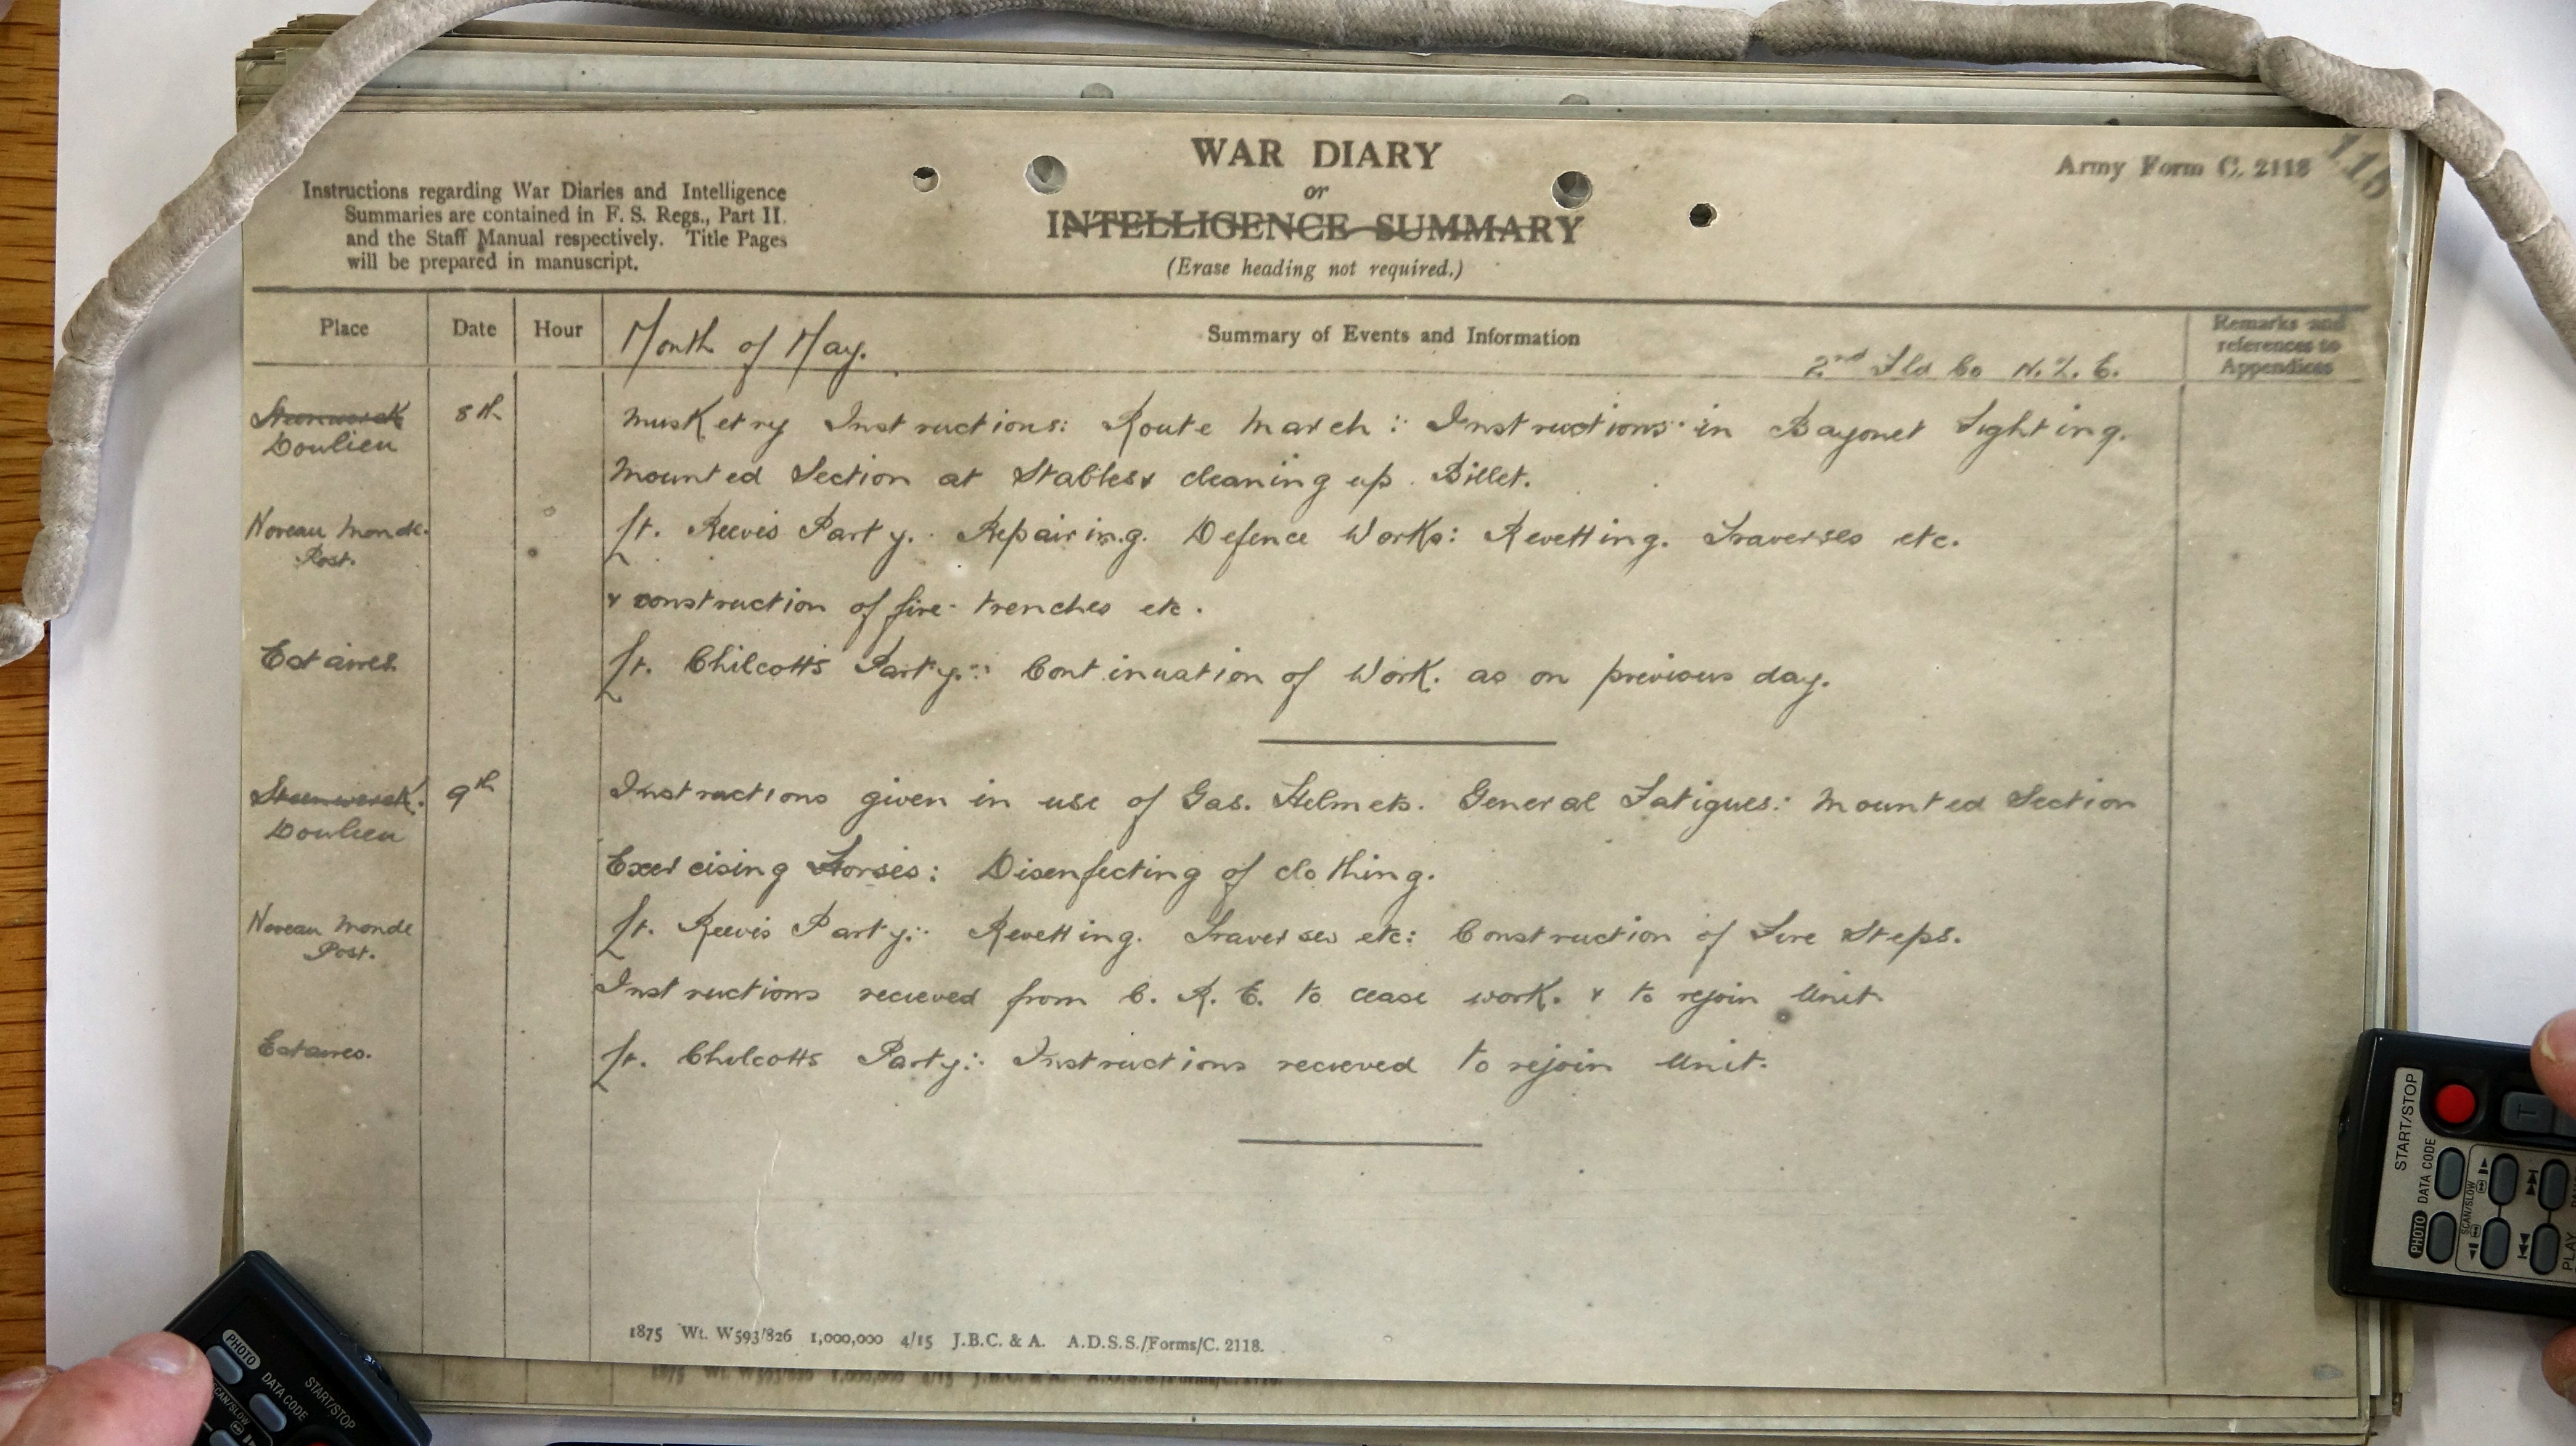 WAR DIARY
or
INTELLIGENCE SUMMARY
(Erase heading not required.)
Army Form C. 2118
Instructions regarding War Diaries and Intelligence
Summaries are contained in F. S. Regs., Part II.
and the Staff Manual respectively. Title Pages
will be prepared in manuscript.
Place Date Hour Summary of Events and Information Remarks and references to Appendices
Month of May. 2nd Fld Co N.Z.E.
Steenwerck 8th Musketry Instructions: Route March: Instructions in Bayonet Fighting.
Doulieu
Mounted Section at Stables & cleaning up Billet.
Noveau Monde Lt. Reevis Party. Repairing. Defence Works: Revetting. Traverses etc.
Post.
& construction of fire-trenches etc.
Estaires Lt. Chilcotts Party: Continuation of Work. as on previous day.
Steenwerck. 9th Instructions given in use of Gas. Helmets. General Fatigues: Mounted Section
Doulieu
Exercising Horses: Disenfecting of clothing.
Noveau Monde Lt. Reevis Party: Revetting. Traverses etc: Construction of Fire Steps.
Post.
Instructions recieved from C. R. E. to cease work. & to rejoin Unit
Estaires. Lt. Chilcotts Party: Instructions recieved to rejoin Unit.
1875 Wt. W593/826 1,000,000 4/15 J.B.C. & A. A.D.S.S./Forms/C. 2118.
START/STOP
DATA CODE
PHOTO
SCAN/SLOW
PLAY
T
PHOTO
DATA CODE
START/STOP
SCAN/SLOW